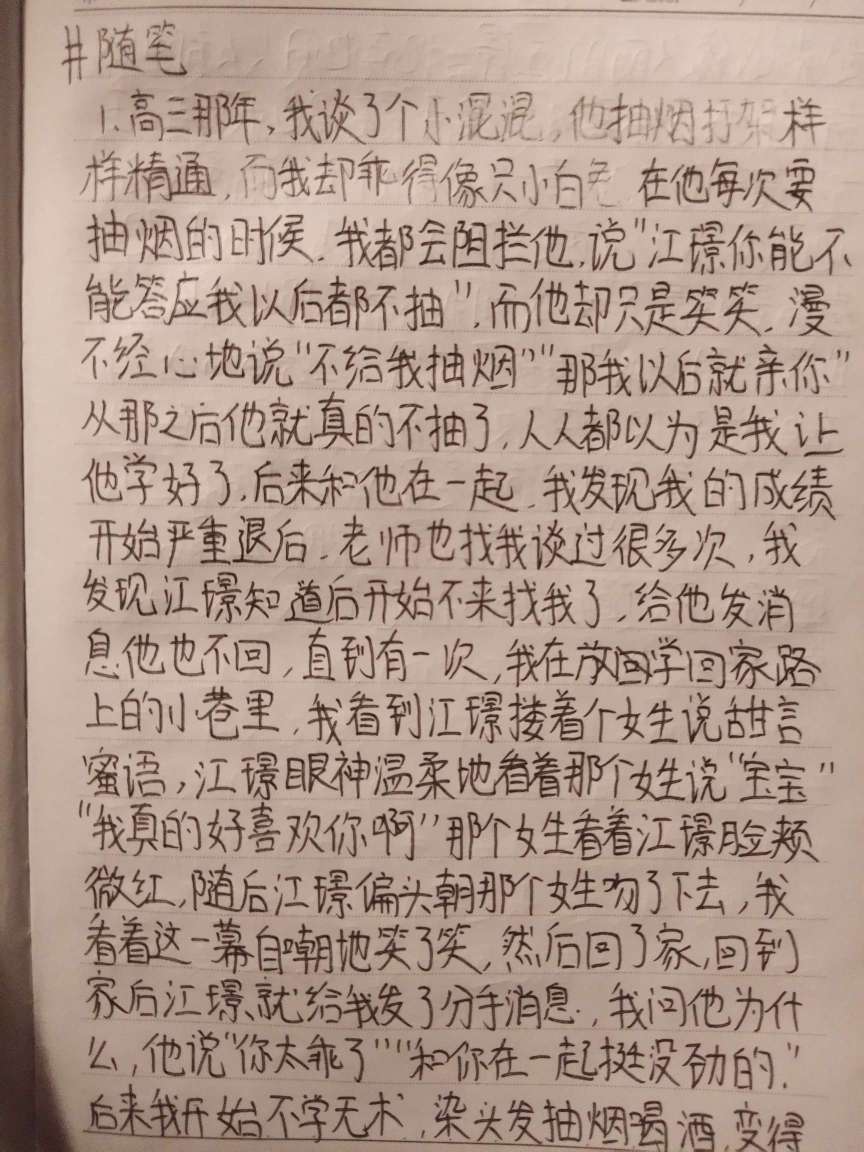 #随笔
1.高三那年,我谈了个小混混,他抽烟打架样
样精通,而我却乖得像只小白兔 在他每次要
抽烟的时候,我都会阻拦他,说"江璟你能不
能答应我以后都不抽",而他却只是笑笑,漫
不经心地说"不给我抽烟""那我以后就亲你"
从那之后他就真的不抽了,人人都以为是我让
他学好了,后来和他在一起,我发现我的成绩
开始严重退后,老师也找我谈过很多次,我
发现江璟知道后开始不来找我了,给他发消
息他也不回,直到有一次,我在放学回家路
上的小巷里,我看到江璟搂着个女生说甜言
蜜语,江璟眼神温柔地看着那个女生说"宝宝"
"我真的好喜欢你啊"那个女生看着江璟脸颊
微红,随后江璟偏头朝那个女生吻了下去,我
看着这一幕自嘲地笑了笑,然后回了家,回到
家后江璟就给我发了分手消息,我问他为什
么,他说"你太乖了""和你在一起挺没劲的."
后来我开始不学无术,染头发抽烟喝酒,变得